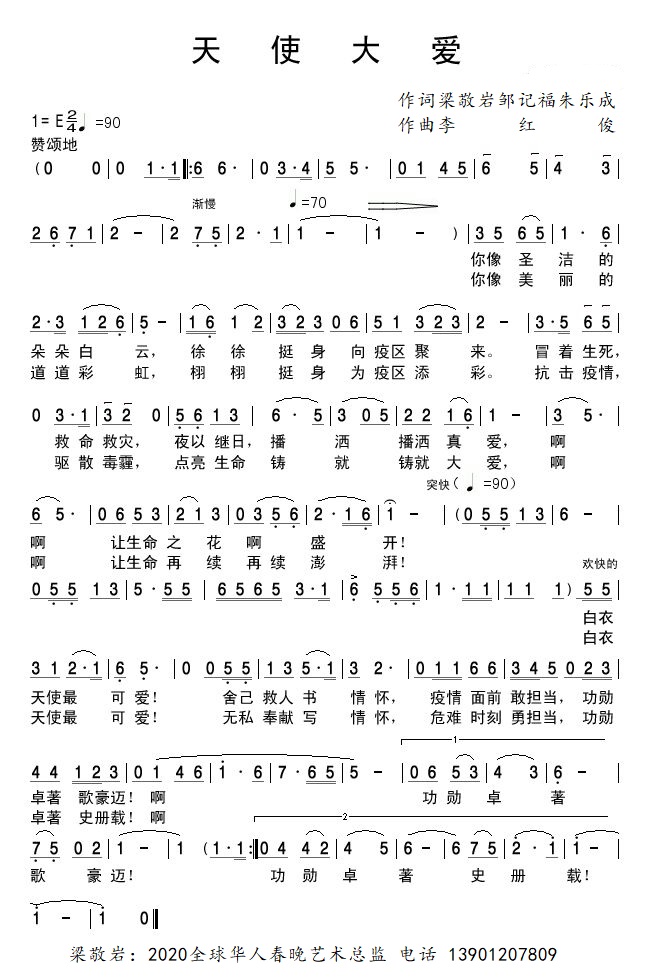 天 使 大 爱
作词梁敬岩邹记福朱乐成
1=E 2/4 ♩=90
作曲李 红 俊
赞颂地
(0 0 | 0 1·1 |: 6 6· | 0 3·4 | 5 5· | 0 1 4 5 | 6 5 | 4 3 |
渐慢 ♩=70
2 6 7 1 | 2 - | 2 7 5 | 2· 1 | 1 - | 1 - ) | 3 5 6 5 | 1· 6 |
你像 圣 洁 的
你像 美 丽 的
2·3 1 2 6 | 5 - | 1 6 1 2 | 3 2 3 0 6 | 5 1 3 2 3 | 2 - | 3·5 6 5 |
朵 朵 白 云， 徐 徐 挺 身 向 疫区 聚 来。 冒 着 生死，
道 道 彩 虹， 栩 栩 挺 身 为 疫区 添 彩。 抗 击 疫情，
0 3·1 | 3 2 0 | 5 6 1 3 | 6· 5 | 3 0 5 | 2 2 1 6 | 1 - | 3 5· |
救 命 救灾， 夜以 继日，播 洒 播洒 真 爱， 啊
驱 散 毒霾， 点亮 生命 铸 就 铸就 大 爱， 啊
突快( ♩=90)
6 5· | 0 6 5 3 | 2 1 3 | 0 3 5 6 | 2·1 6 | 1 - | (0 5 5 1 3 | 6 - |
啊 让生命 之 花 啊 盛 开！
啊 让生命 再 续 再续 澎 湃！
欢快的
0 5 5 1 3 | 5·5 5 | 6 5 6 5 3·1 | 6 5 5 6 | 1·1 1 1 | 1 1 1 ) 5 5 |
白衣
白衣
3 1 2·1 | 6 5· | 0 0 5 5 | 1 3 5·1 | 3 2· | 0 1 1 6 6 | 3 4 5 0 2 3 |
天使最 可 爱！ 舍己 救人 书 情 怀， 疫情 面前 敢担当，功勋
天使最 可 爱！ 无私 奉献 写 情 怀， 危难 时刻 勇担当，功勋
1
4 4 1 2 3 | 0 1 4 6 | 1· 6 | 7·6 5 | 5 - | 0 6 5 3 | 4 3 | 6 - |
卓著 歌豪迈！啊 功 勋 卓 著
卓著 史册载！啊
2
7 5 0 2 | 1 - | 1 (1·1 :| 0 4 4 2 | 4 5 | 6 - | 6 7 5 | 2· 1 | 1 - |
歌 豪 迈！ 功 勋 卓 著 史 册 载！
1 - | 1 0 ‖
梁敬岩：2020全球华人春晚艺术总监 电话 13901207809